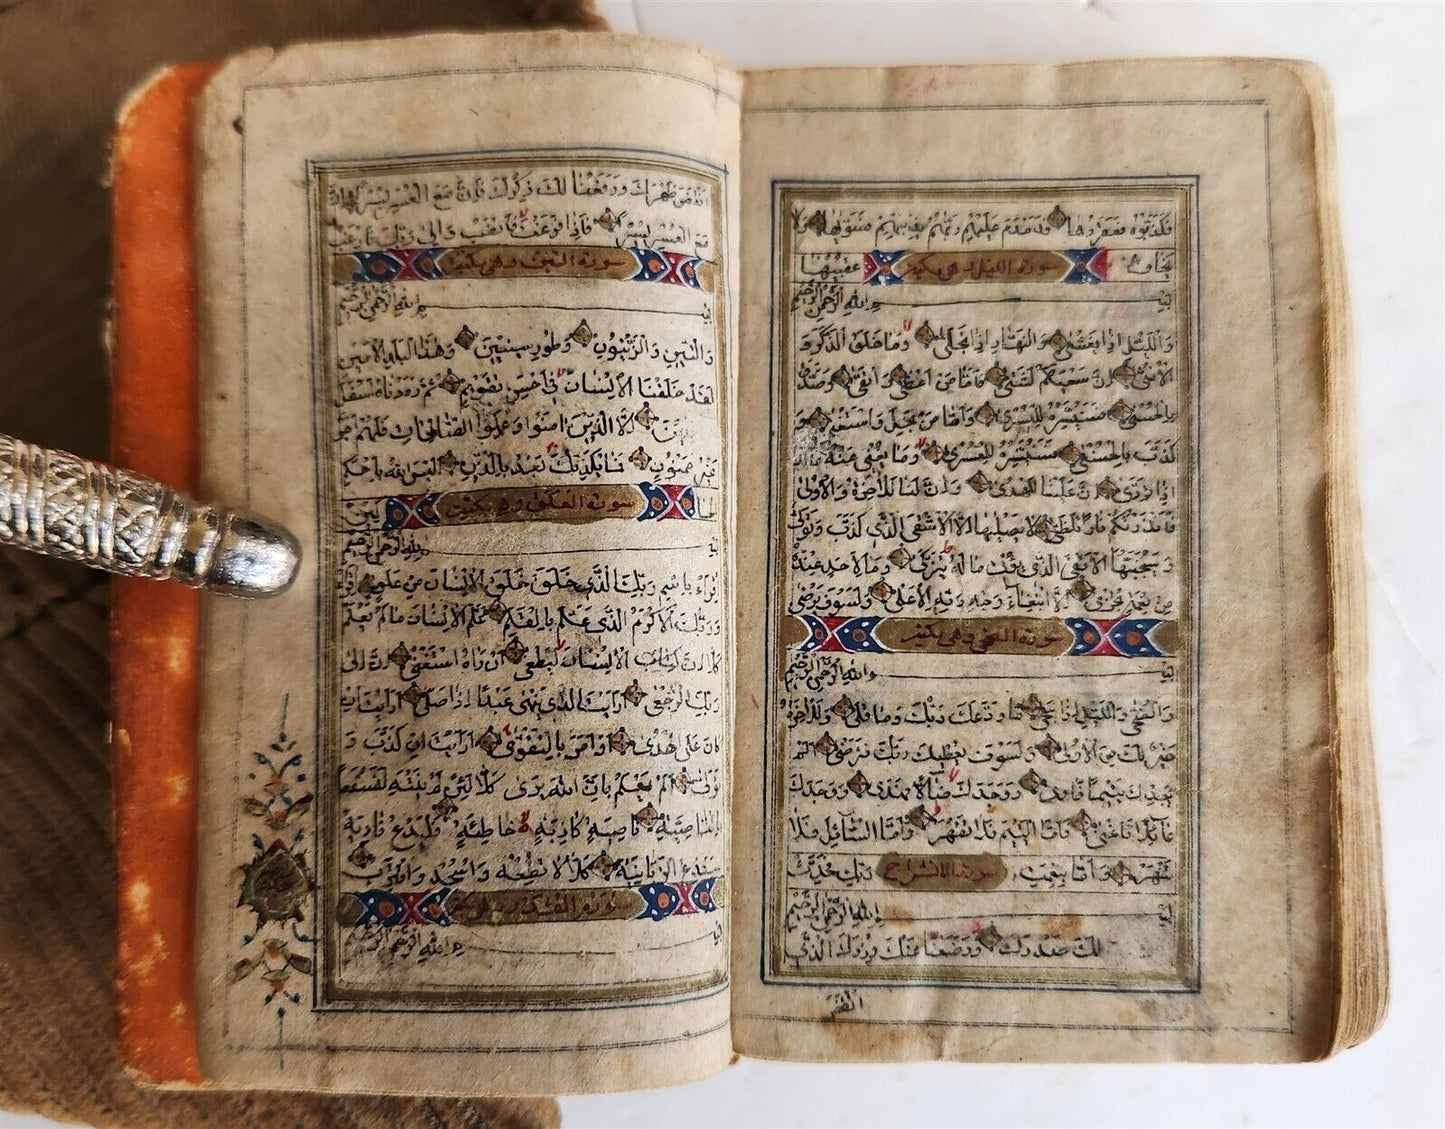 فَكَذَّبُوهُ فَعَقَرُوهَا فَدَمْدَمَ عَلَيْهِمْ رَبُّهُمْ بِذَنْبِهِمْ فَسَوّٰيهَا وَلَا
يَخَافُ سورة الليل وهي مكية عُقْبٰيهَا
بِسْمِ اللّٰهِ الرَّحْمٰنِ الرَّحِيمِ
وَاللَّيْلِ اِذَا يَغْشٰى وَالنَّهَارِ اِذَا تَجَلّٰى وَمَا خَلَقَ الذَّكَرَ وَ
الْاُنْثٰى اِنَّ سَعْيَكُمْ لَشَتّٰى فَاَمَّا مَنْ اَعْطٰى وَاتَّقٰى وَصَدَّقَ
بِالْحُسْنٰى فَسَنُيَسِّرُهُ لِلْيُسْرٰى وَاَمَّا مَنْ بَخِلَ وَاسْتَغْنٰى وَ
كَذَّبَ بِالْحُسْنٰى فَسَنُيَسِّرُهُ لِلْعُسْرٰى وَمَا يُغْنِى عَنْهُ مَالُهُ
اِذَا تَرَدّٰى اِنَّ عَلَيْنَا لَلْهُدٰى وَاِنَّ لَنَا لَلْاٰخِرَةَ وَالْاُولٰى
فَاَنْذَرْتُكُمْ نَارًا تَلَظّٰى لَا يَصْلٰيهَا اِلَّا الْاَشْقَى الَّذِى كَذَّبَ وَتَوَلّٰى
وَسَيُجَنَّبُهَا الْاَتْقَى الَّذِى يُؤْتِى مَالَهُ يَتَزَكّٰى وَمَا لِاَحَدٍ عِنْدَهُ
مِنْ نِعْمَةٍ تُجْزٰى اِلَّا ابْتِغَاءَ وَجْهِ رَبِّهِ الْاَعْلٰى وَلَسَوْفَ يَرْضٰى
سورة الضحى وهي مكية
بِسْمِ اللّٰهِ الرَّحْمٰنِ الرَّحِيمِ
وَالضُّحٰى وَاللَّيْلِ اِذَا سَجٰى مَا وَدَّعَكَ رَبُّكَ وَمَا قَلٰى وَلَلْاٰخِرَةُ
خَيْرٌ لَكَ مِنَ الْاُولٰى وَلَسَوْفَ يُعْطِيكَ رَبُّكَ فَتَرْضٰى اَلَمْ
يَجِدْكَ يَتِيمًا فَاٰوٰى وَوَجَدَكَ ضَالًّا فَهَدٰى وَوَجَدَكَ
عَائِلًا فَاَغْنٰى فَاَمَّا الْيَتِيمَ فَلَا تَقْهَرْ وَاَمَّا السَّائِلَ فَلَا
تَنْهَرْ وَاَمَّا بِنِعْمَةِ سورة الانشراح رَبِّكَ فَحَدِّثْ
بِسْمِ اللّٰهِ الرَّحْمٰنِ الرَّحِيمِ
لَكَ صَدْرَكَ وَوَضَعْنَا عَنْكَ وِزْرَكَ الَّذِى
انقض
اَنْقَضَ ظَهْرَكَ وَرَفَعْنَا لَكَ ذِكْرَكَ فَاِنَّ مَعَ الْعُسْرِ يُسْرًا اِنَّ
مَعَ الْعُسْرِ يُسْرًا فَاِذَا فَرَغْتَ فَانْصَبْ وَاِلٰى رَبِّكَ فَارْغَبْ
سورة التين وهي مكية
بِسْمِ اللّٰهِ الرَّحْمٰنِ الرَّحِيمِ
وَالتِّينِ وَالزَّيْتُونِ وَطُورِ سِينِينَ وَهٰذَا الْبَلَدِ الْاَمِينِ
لَقَدْ خَلَقْنَا الْاِنْسَانَ فِى اَحْسَنِ تَقْوِيمٍ ثُمَّ رَدَدْنَاهُ اَسْفَلَ
سَافِلِينَ اِلَّا الَّذِينَ اٰمَنُوا وَعَمِلُوا الصَّالِحَاتِ فَلَهُمْ اَجْرٌ
غَيْرُ مَمْنُونٍ فَمَا يُكَذِّبُكَ بَعْدُ بِالدِّينِ اَلَيْسَ اللّٰهُ بِاَحْكَمِ
الحا سورة العلق وهي مكية كمين
بِسْمِ اللّٰهِ الرَّحْمٰنِ الرَّحِيمِ
اِقْرَاْ بِاسْمِ رَبِّكَ الَّذِى خَلَقَ خَلَقَ الْاِنْسَانَ مِنْ عَلَقٍ اِقْرَاْ
وَرَبُّكَ الْاَكْرَمُ الَّذِى عَلَّمَ بِالْقَلَمِ عَلَّمَ الْاِنْسَانَ مَا لَمْ يَعْلَمْ
كَلَّا اِنَّ الْاِنْسَانَ لَيَطْغٰى اَنْ رَاٰهُ اسْتَغْنٰى اِنَّ اِلٰى
رَبِّكَ الرُّجْعٰى اَرَاَيْتَ الَّذِى يَنْهٰى عَبْدًا اِذَا صَلّٰى اَرَاَيْتَ اِنْ
كَانَ عَلَى الْهُدٰى اَوْ اَمَرَ بِالتَّقْوٰى اَرَاَيْتَ اِنْ كَذَّبَ وَ
تَوَلّٰى اَلَمْ يَعْلَمْ بِاَنَّ اللّٰهَ يَرٰى كَلَّا لَئِنْ لَمْ يَنْتَهِ لَنَسْفَعًا
بِالنَّاصِيَةِ نَاصِيَةٍ كَاذِبَةٍ خَاطِئَةٍ فَلْيَدْعُ نَادِيَهُ
سَنَدْعُ الزَّبَانِيَةَ كَلَّا لَا تُطِعْهُ وَاسْجُدْ وَاقْتَرِبْ
سورة القدر
بِسْمِ اللّٰهِ الرَّحْمٰنِ الرَّحِيمِ